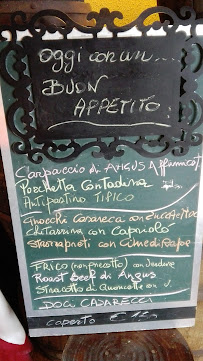 Oggi con un...
BUON
APPETITO.
Carpaccio di ANGUS Affumicat
Porchetta Contadina
Antipastino TIPICO
Gnocchi Casareca con
Chitarrina con Capriolo
Strozzapreti con Cime di Rapa
FRICO (non precotto) con Verdure
Roast Beef di Angus
Stracotto di Guancette con V.
DOLCI CASARECCI
Coperto €